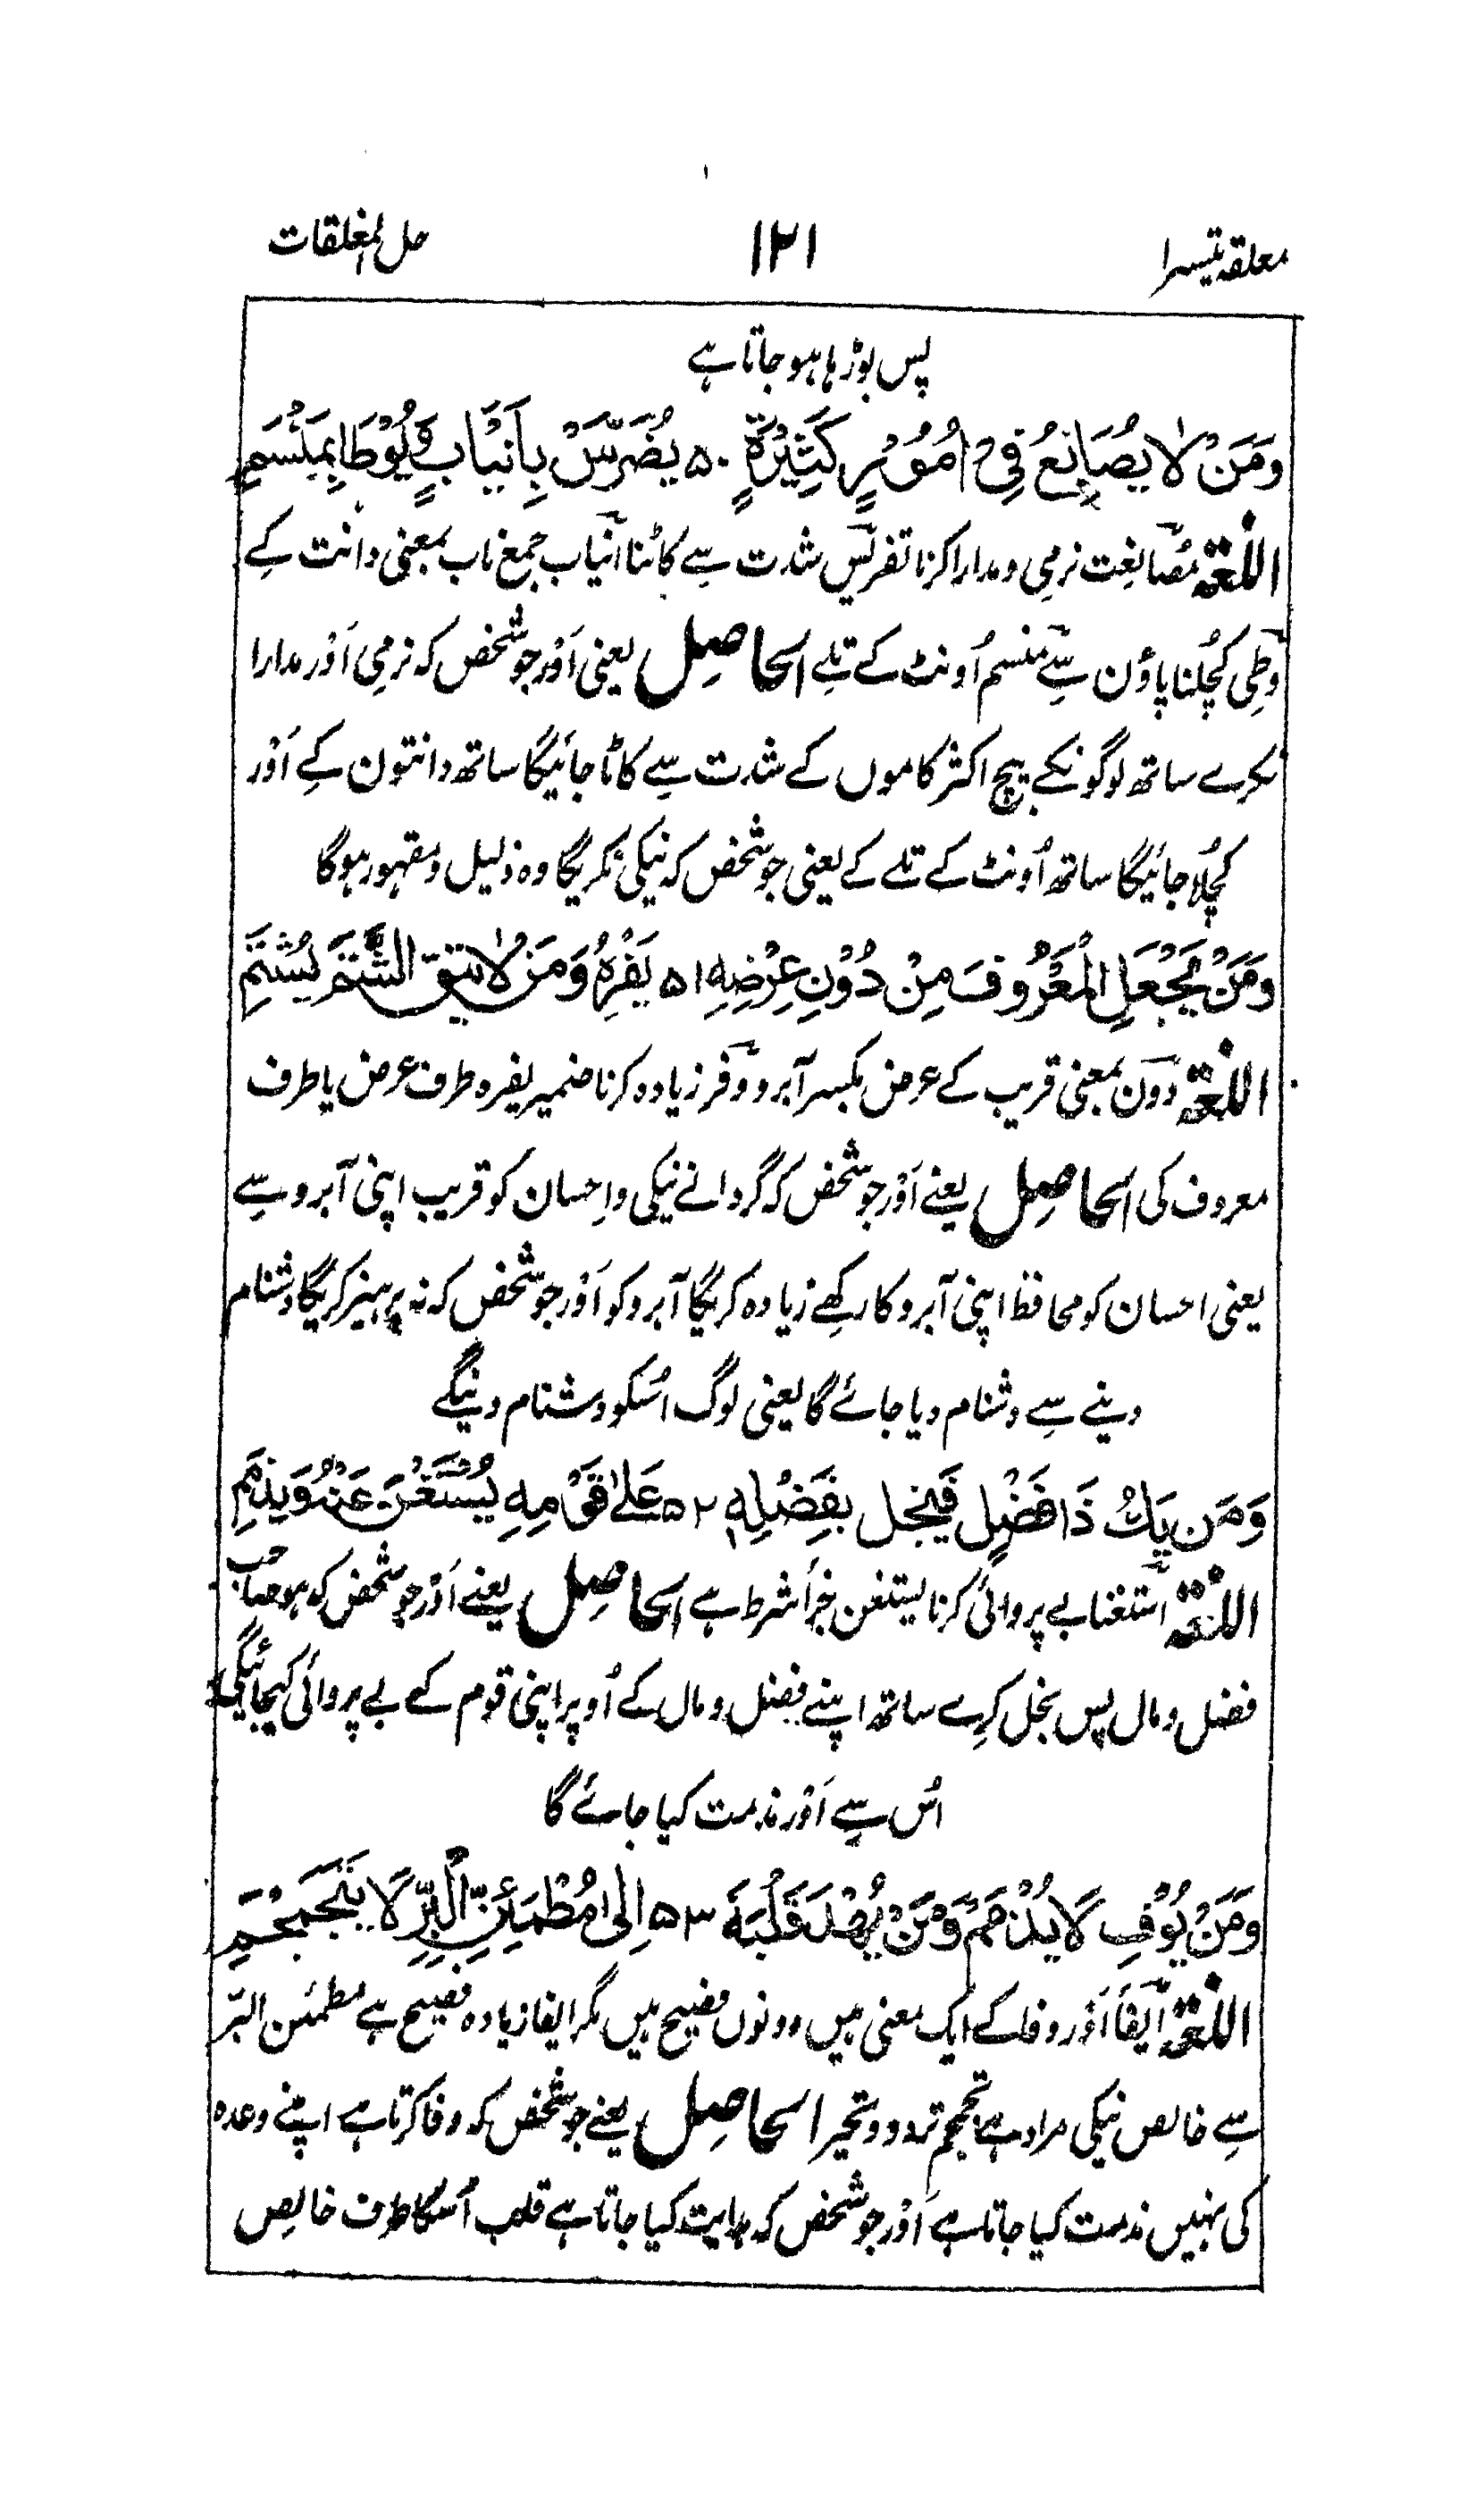 معلقہ تیسرا ۱۲۱ حل المغلقات
پس بوڑہا ہو جاتا ہے
وَمَنْ لَا يُصَانِعُ فِیْ اُمُوْرٍ كَثِيْرَةٍ ۵۰ يُضَرَّسْ بِاَنْيَابٍ وَّيُوْطَأ بِمَنْسَمِ
اللغۃ مُصانعت نرمی و مدارا کرنا تضریس شدت سے کاٹنا انیاب جمع ناب بمعنی دانت کے
وطی کُچلنا پاؤن سے منسم اُونٹ کے تلے الحاصل یعنی اَور جو شخص کہ نرمی اَور مدارا
نکرے ساتھ لوگونکے بیچ اکثر کاموں کے شدت سے کاٹا جائیگا ساتھ دانتون کے اَوْر
کُچلا جائیگا ساتھ اُونٹ کے تلے کے یعنی جو شخص کہ نیکی نکریگا وہ ذلیل و مقہور ہوگا
وَمَنْ يَجْعَلِ الْمَعْرُوفَ مِنْ دُوْنِ عِرْضِهٖ ۵۱ يَفْرِهُ وَمَنْ لَا يَتَّقِ الشَّتْمَ يُشْتَمِ
اللغۃ دون بمعنی قریب کے عرض بکسر آبرو وفر زیادہ کرنا ضمیر یفرہ طرف عرض یا طرف
معروف کی الحاصل یعنے اَوْر جو شخص کہ گردانے نیکی و احسان کو قریب اپنی آبرو سے
یعنی احسان کو محافظ اپنی آبرو کا رکھے زیادہ کریگا آبرو کو اَوْر جو شخص کہ نہ پرہیز کریگا دشنام
دینے سے دشنام دیا جائے گا یعنی لوگ اسُکو دشنام دینگے
وَمَن يَكُ ذَا فَضْلٍ فَيَبْخَل بِفَضْلِهٖ ۵۲ عَلٰى قَوْمِهٖ يُسْتَغْنَ عَنْهُ وَيُذْمَمِ
اللغۃ استغنا بے پروائی کرنا یستغن جزأ شرط ہے الحاصل یعنے اَوْر جو شخص کہ ہو صاحب
فضل و مال پس بخل کرے ساتھ اپنے فضل و مال کے اُوپر اپنی قوم کے بے پروائی کیجائیگی
اسُ سے اَوْر مذمت کیا جائے گا
وَمَنْ يُوْفِ لَا يُذْمَمْ وَمَنْ يُهْدَ قَلْبُهٗ ۵۳ اِلٰى مُطْمَئِنِّ الْبِرِّ لَا يَتَجَمْجَمِ
اللغۃ ایفا اَوْر وفا کے ایک معنی ہیں دونوں فصیح ہیں مگر ایفا زیادہ فصیح ہے مطمئن البرّ
سے خالص نیکی مراد ہے تجمجم تردد و تحیر الحاصل یعنے جو شخص کہ وفا کرتا ہے اپنے وعدہ
کی نہیں مذمت کیا جاتا ہے اَوْر جو شخص کہ ہدایت کیا جاتا ہے قلب اُسکا طرف خالص